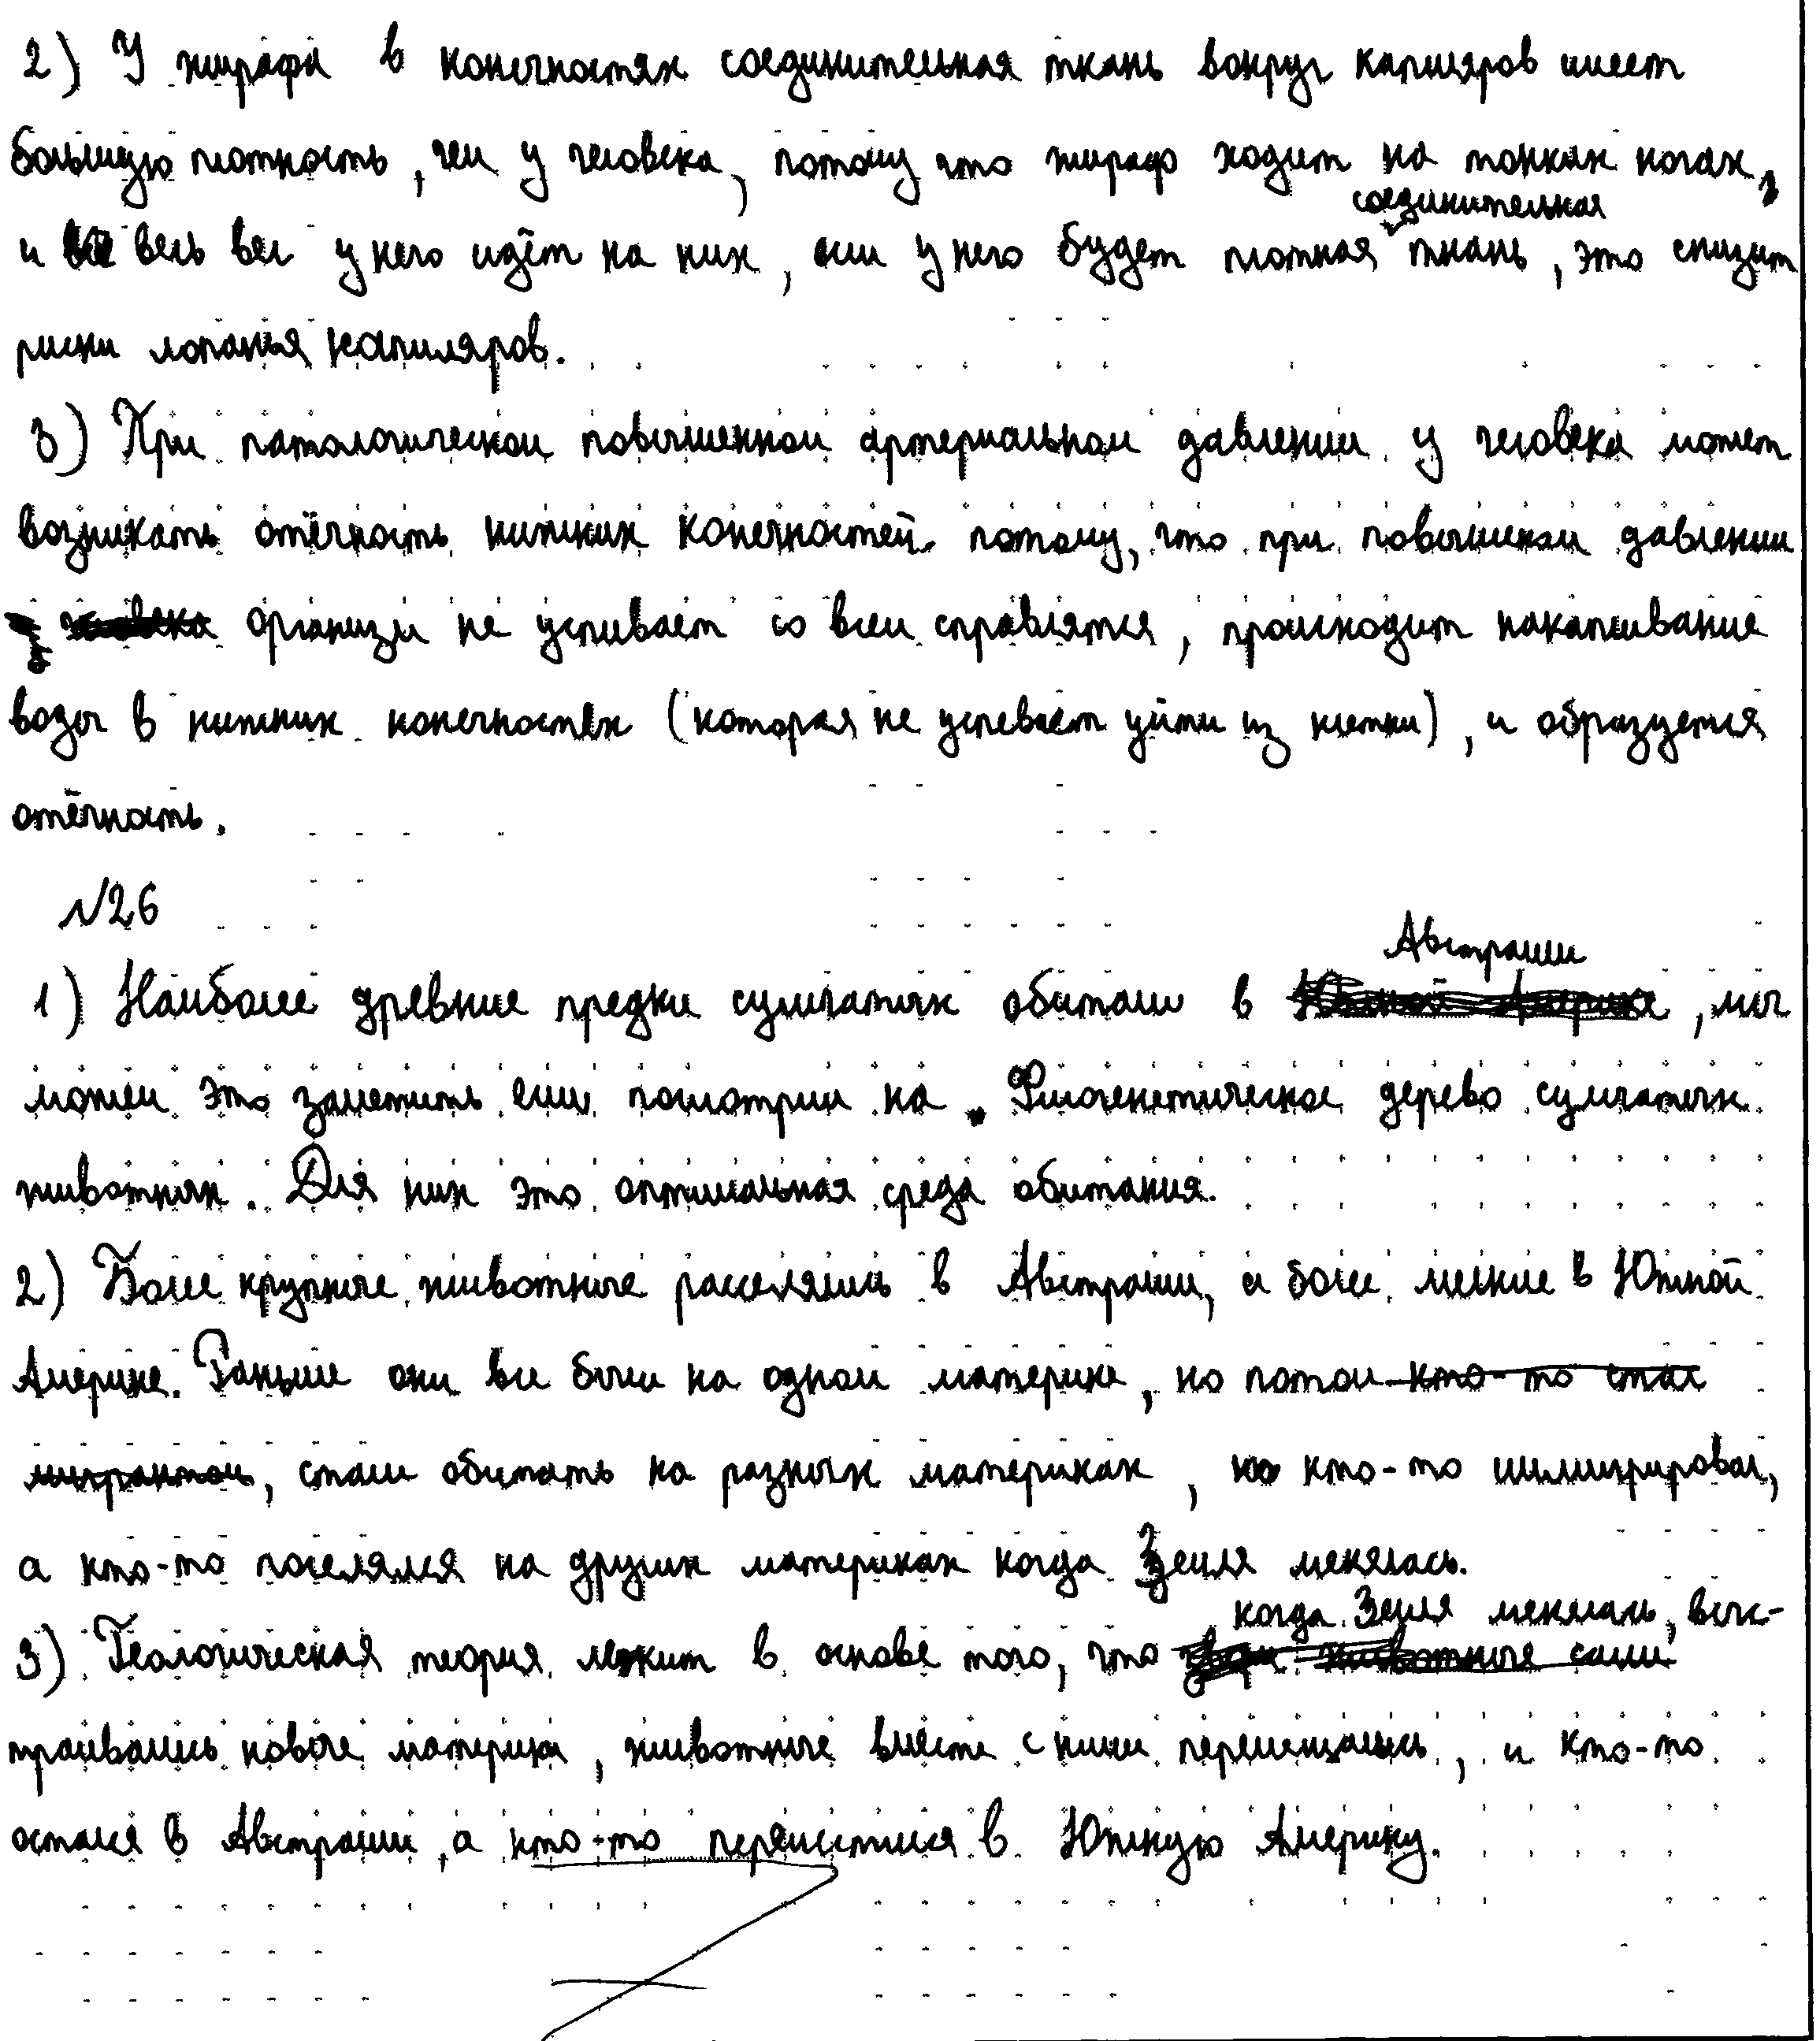 2) У жирафа в конечностях соединительная ткань вокруг капиляров имеет
большую плотность, чем у человека, потому что жираф ходит на тонких ногах,
и весь вес у него идёт на них, если у него будет плотная соединительная ткань, это снизит
риски лопанья капиляров.
3) При патологическом повышенном артериальном давлении у человека может
возникать отёчность нижних конечностей потому, что при повышеном давлении
организм не успивает со всем справлятся, происходит накапливание
воды в нижних конечностях (которая не успевает уйти из клетки), и образуется
отёчность.
№26
1) Наиболее древние предки сумчатых обитали в Австралии, мы
можем это заметить если посмотрим на Филогенетическое дерево сумчатых
животных. Для них это оптимальная среда обитания.
2) Более крупные животные расселялись в Австралии, а более мелкие в Южной
Америке. Раньше они все были на одном материке, но потом кто-то стал
мигрантом, стали обитать на разных материках, кто-то иммигрировал,
а кто-то поселялся на других материках когда Земля менялась.
3) Геологическая теория лежит в основе того, что когда Земля менялась, выс-
траивались новые материки, животные вместе с ними перемещались, и кто-то
остался в Австралии, а кто-то переместился в Южную Америку.